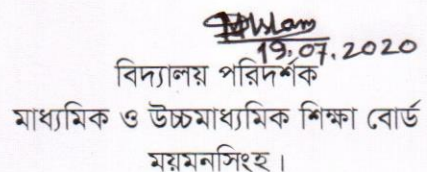 19.07.2020
বিদ্যালয় পরিদর্শক
মাধ্যমিক ও উচ্চমাধ্যমিক শিক্ষা বোর্ড
ময়মনসিংহ।